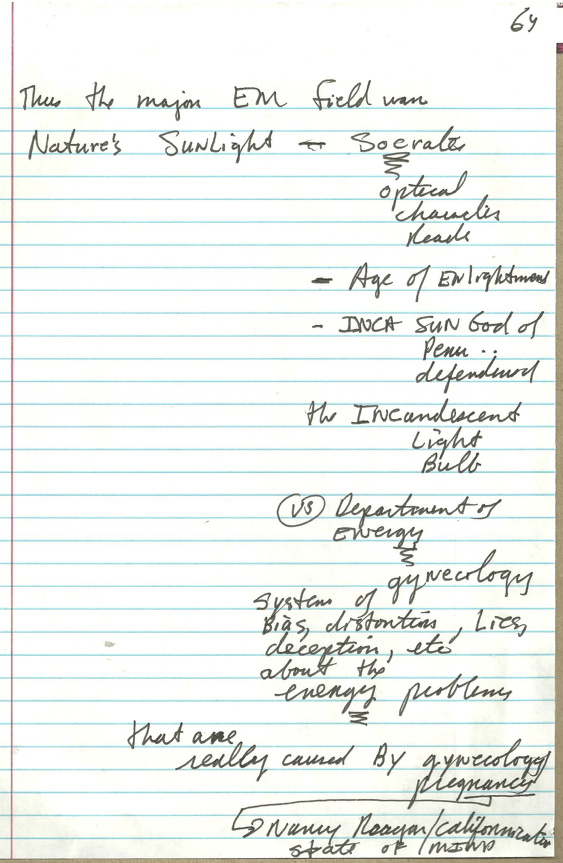 64
Thus the major EM field was
Nature's SunLight - Socrates
optical
characters
Reads
- Age of Enlightment
- INCA SUN God of
Peru ..
defendend
the INCandescent
Light
Bulb
(VS) Department of
Energy
gynecology
system of
Bias, distortions, Lies,
deception, etc
about the
energy problems
that are
really caused By gynecology
pregnancy
Nancy Reagan/californication
state of mind